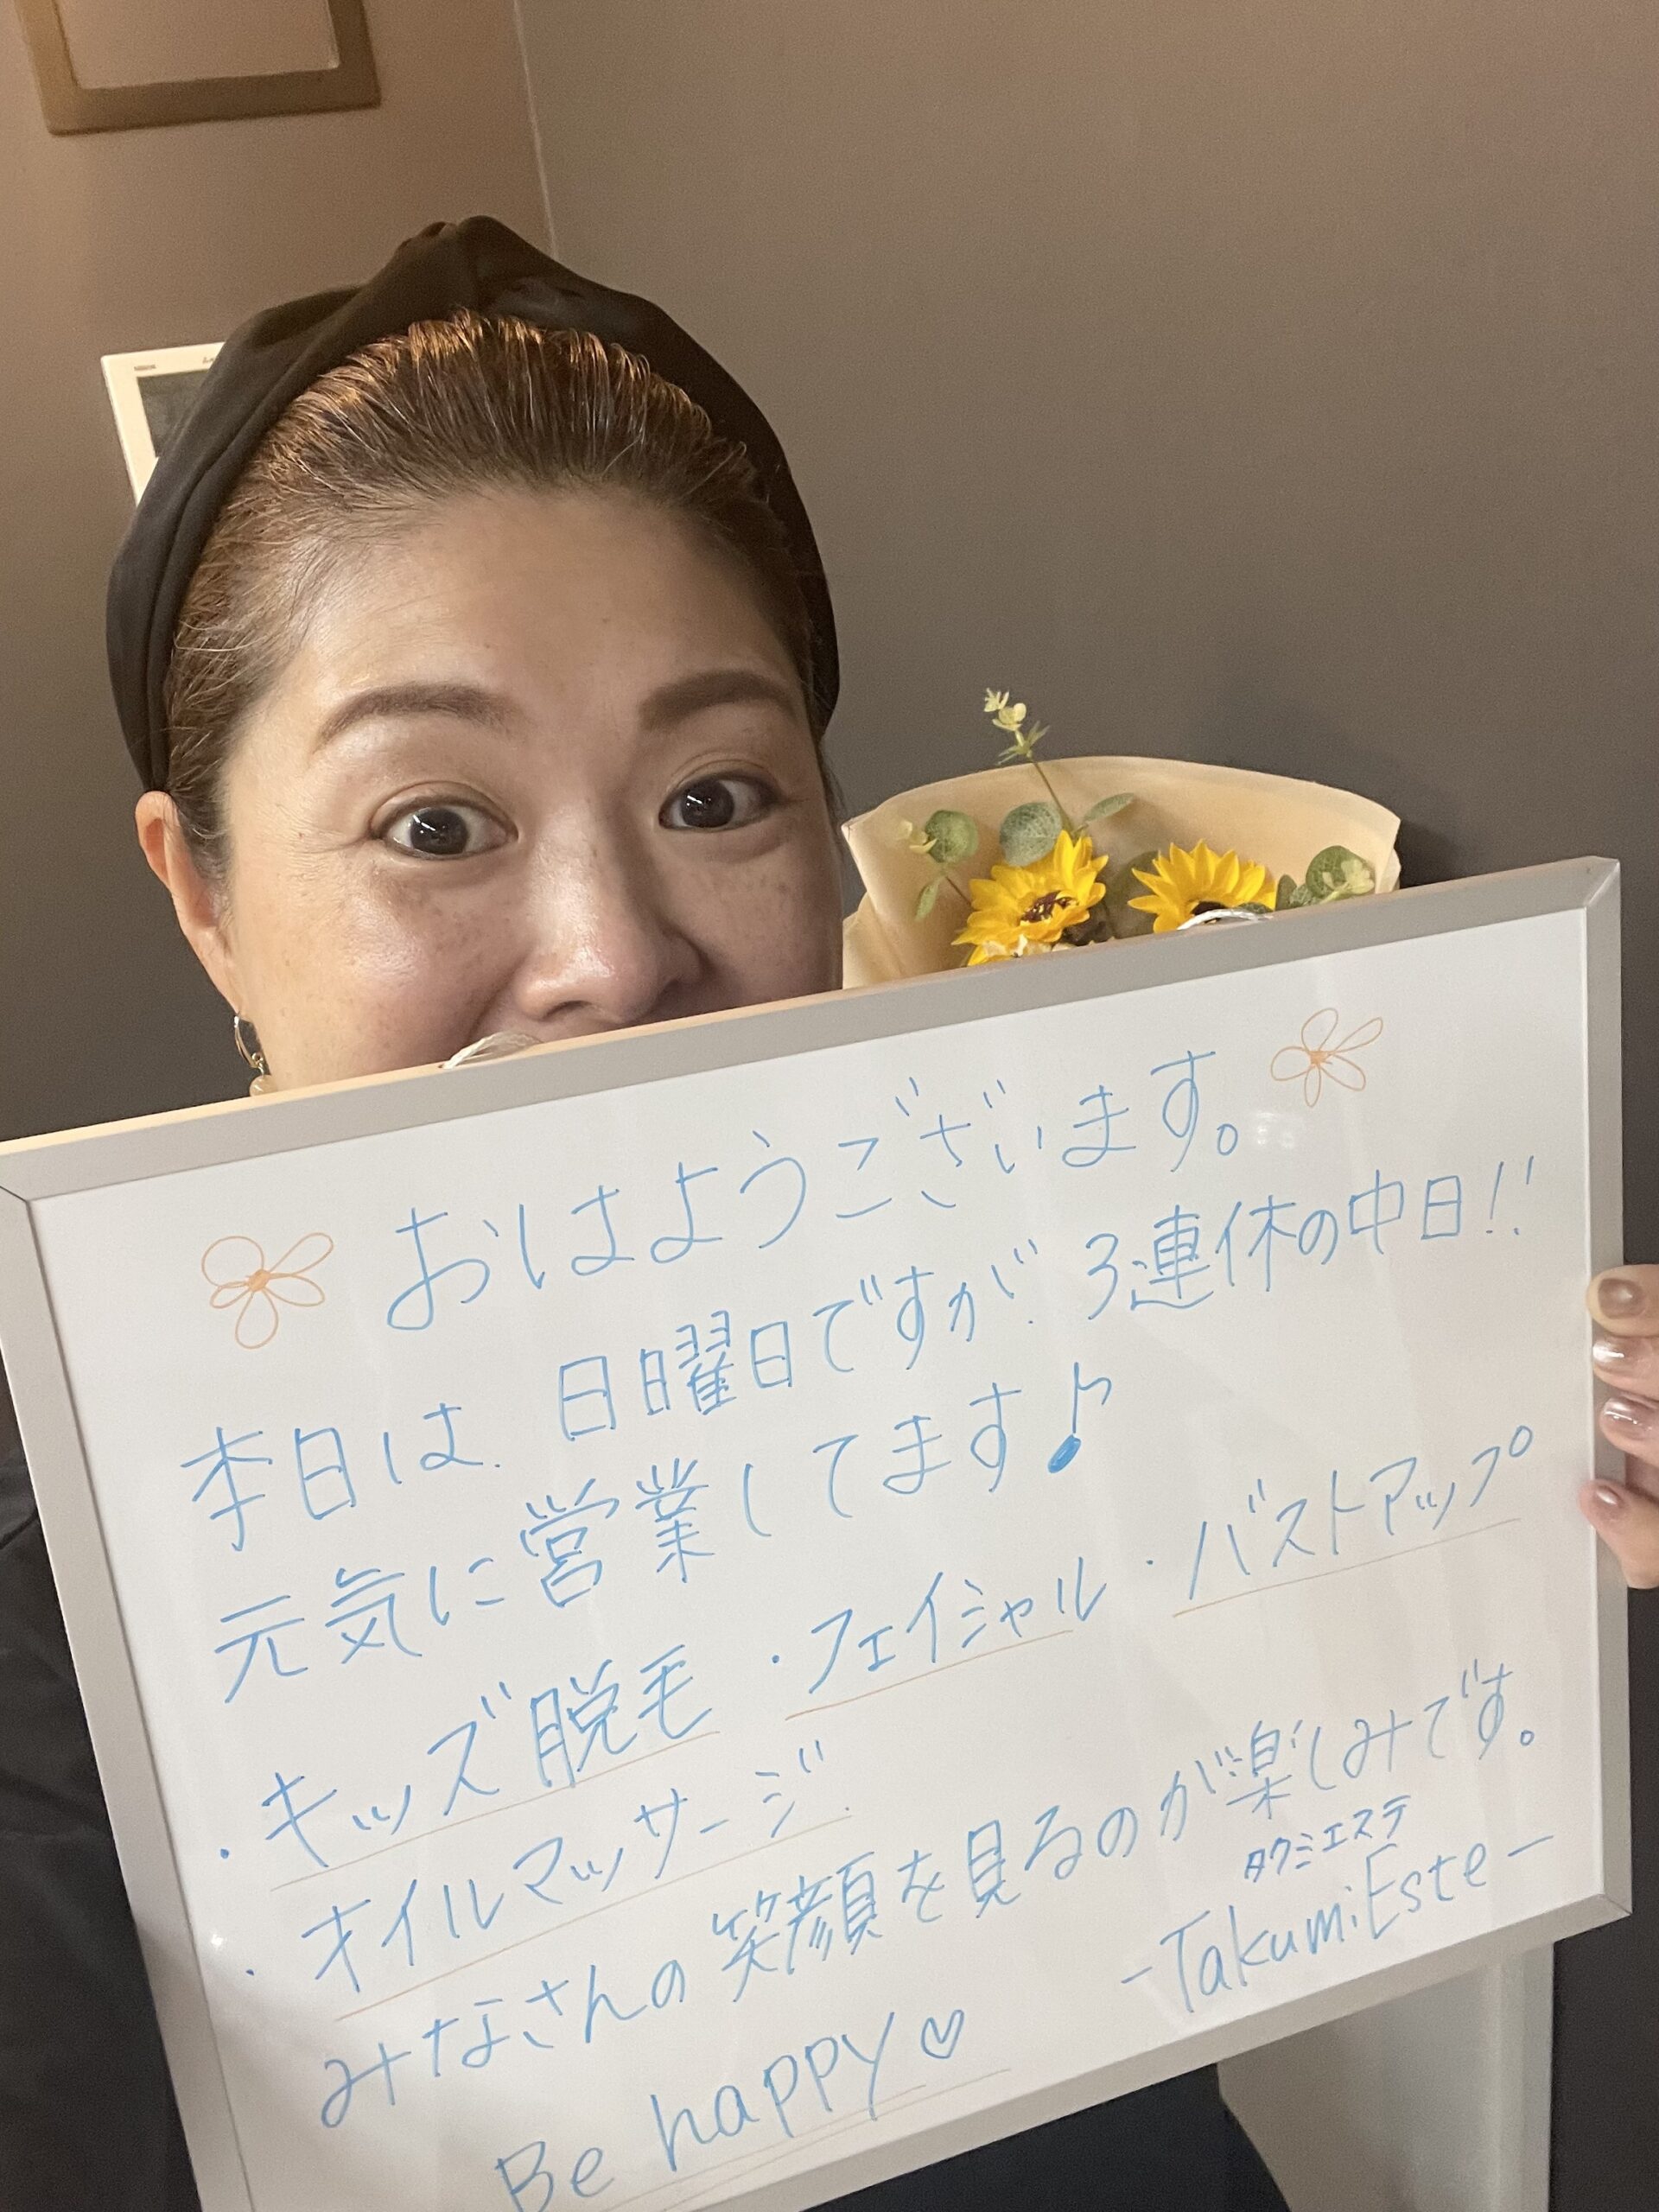 おはようございます。
本日は、日曜日ですが、3連休の中日!!
元気に営業してます♪
・キッズ脱毛 ・フェイシャル ・バストアップ
・オイルマッサージ
みなさんの笑顔を見るのが楽しみです。
タクミエステ
-TakumiEste-
Be happy♡